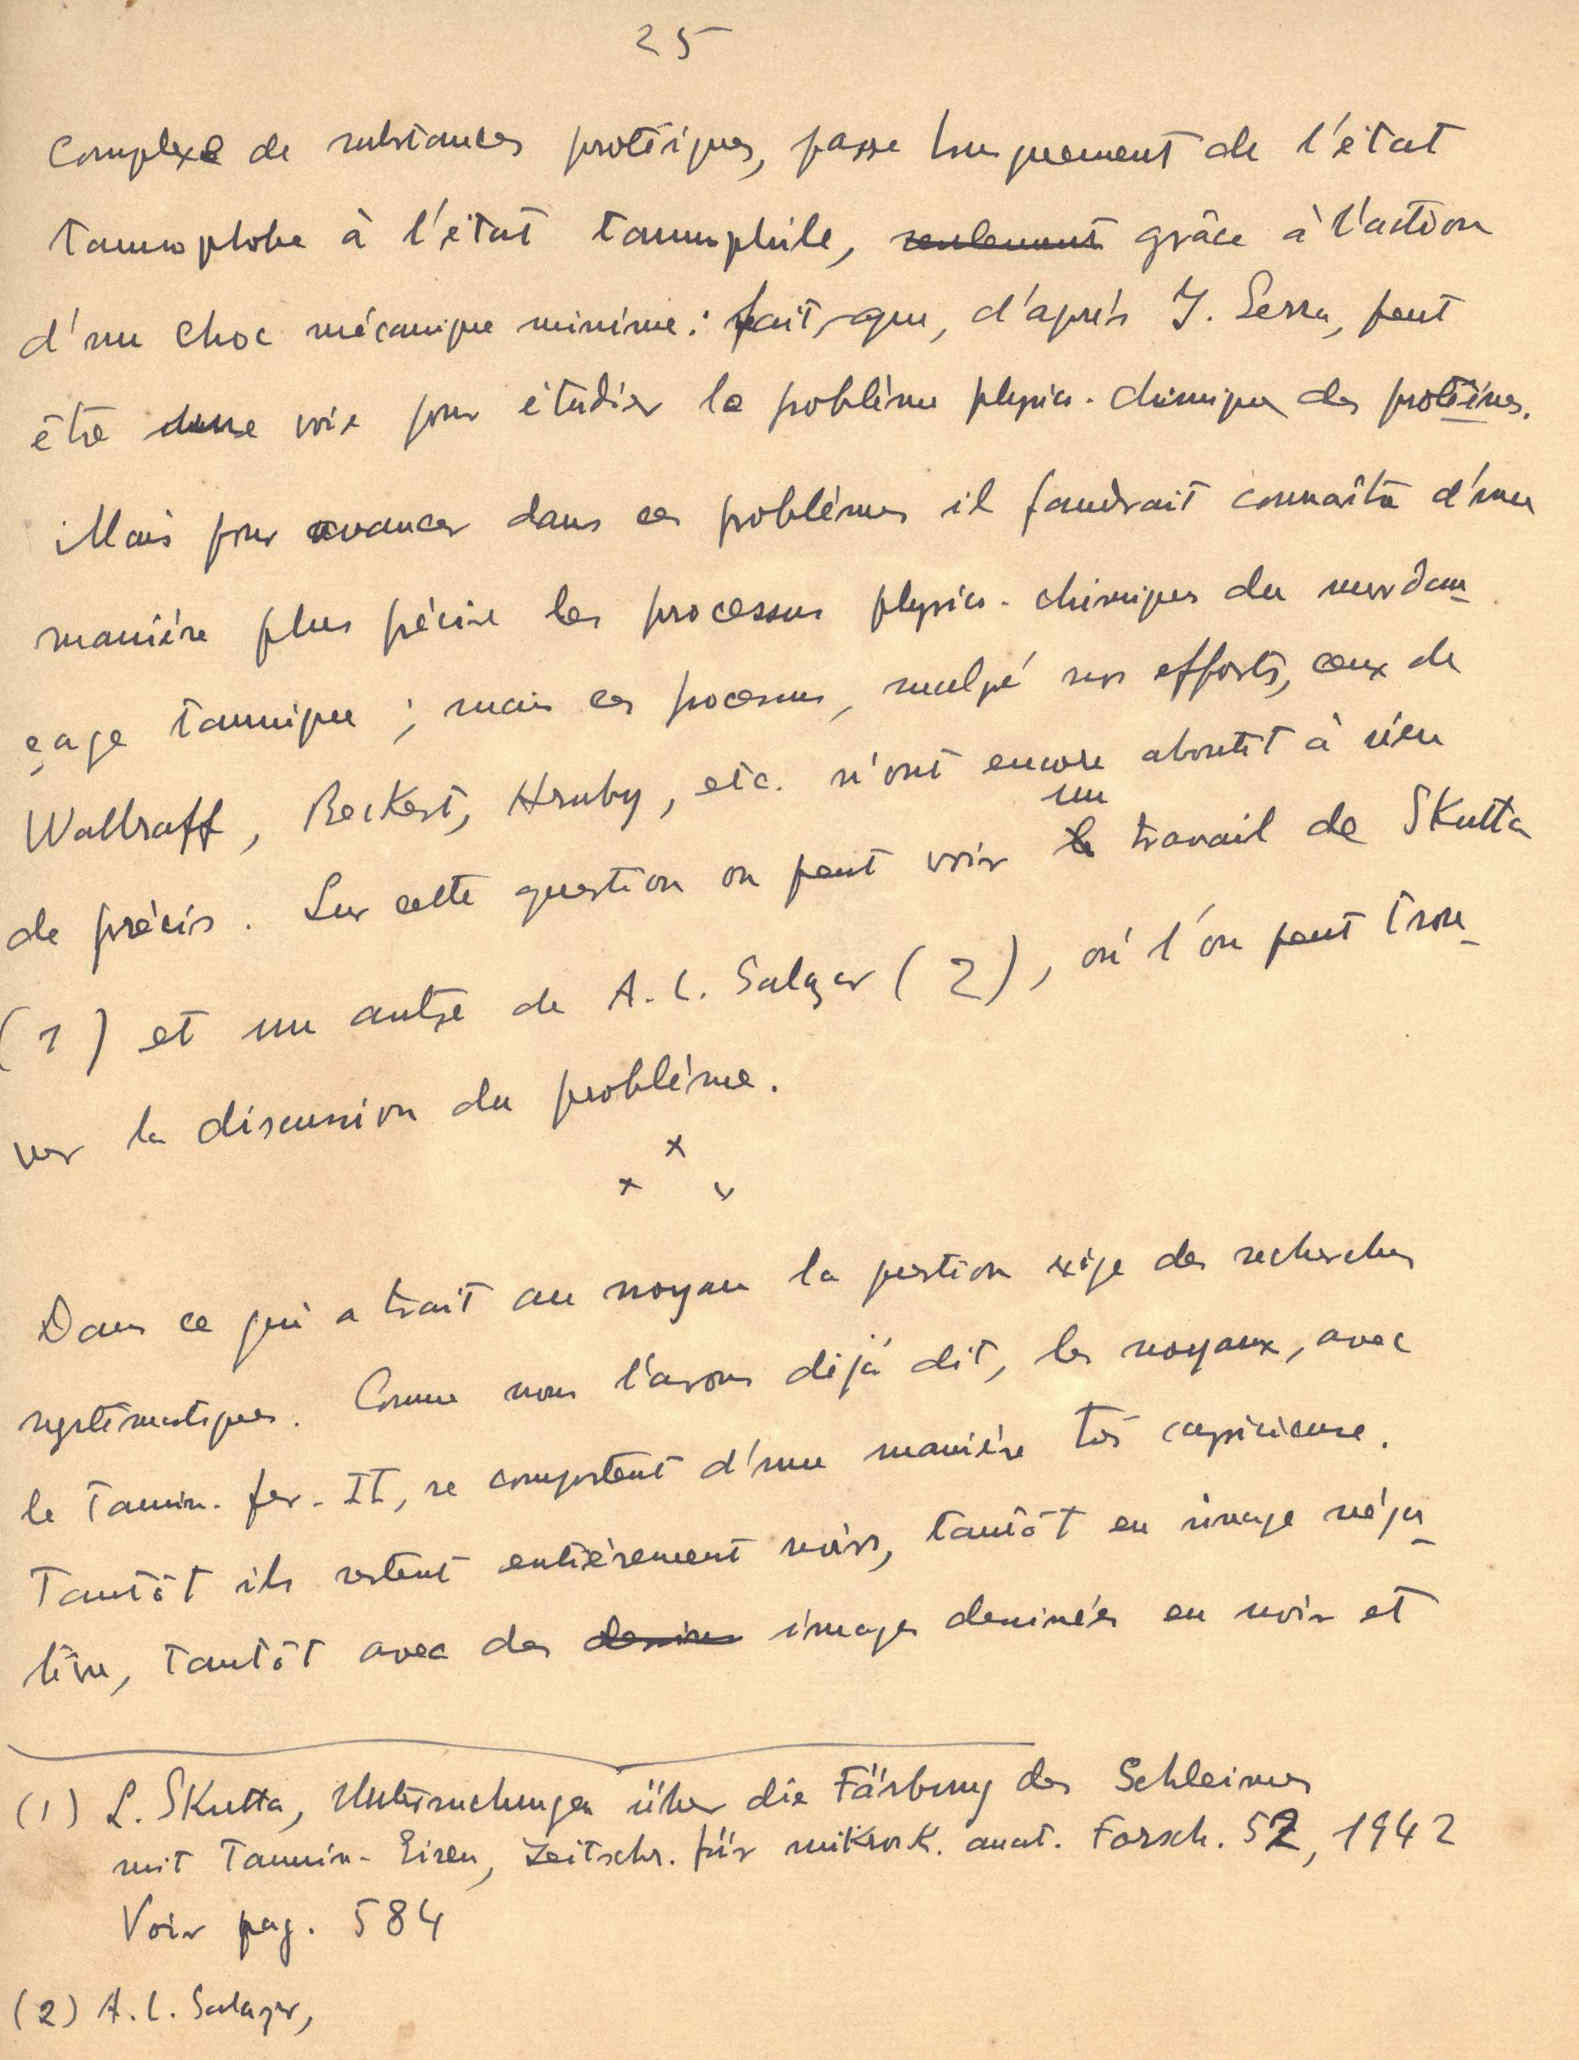 25
complexe de substances protéiques, passe brusquement de l'état
tannophobe à l'état tannophile, seulement grâce à l'action
d'un choc mécanique minime: fait, que, d'après J. Serra, peut
être une voie pour étudier le problème physico-chimique des protéines.
Mais pour avancer dans ces problèmes il faudrait connaître d'une
manière plus précise les processus physico-chimiques du mordan-
çage tannique; mais ces processus, malgré nos efforts, ceux de
Wallraff, Beckert, Hruby, etc. n'ont encore aboutit à rien
de précis. Sur cette question on peut voir un travail de Skutta
(1) et un autre de A. L. Salazar (2), où l'on peut trou-
ver la discussion du problème.
x
x x
Dans ce qui a trait au noyau la question exige des recherches
systématiques. Comme nous l'avons déjà dit, les noyaux, avec
le Tannin-fer-II, se comportent d'une manière très capricieuse.
Tantôt ils restent entièrement noirs, tantôt en image néga-
tive, tantôt avec des dessins images dessinées en noir et
(1) L. Skutta, Untersuchungen über die Färbung des Schleimes
mit Tannin-Eisen, Zeitschr. für mikrosk. anat. Forsch. 52, 1942
Voir pag. 584
(2) A. L. Salazar,